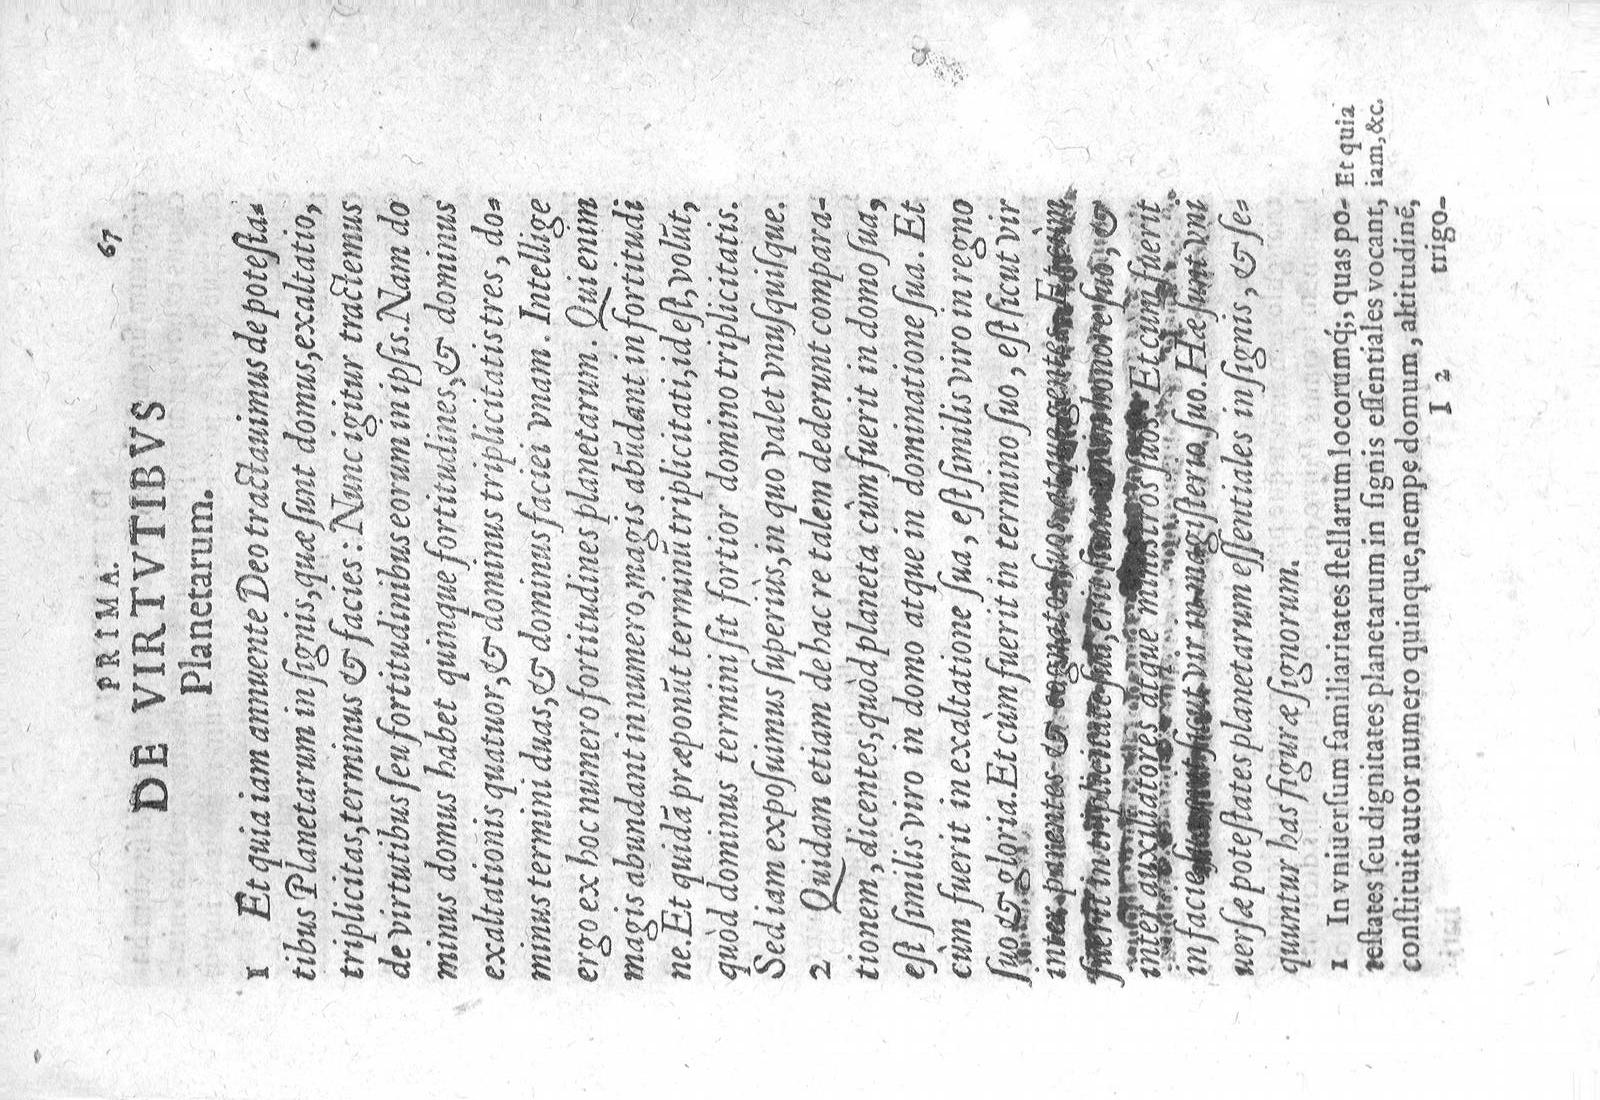 PRIMA. 67
DE VIRTVTIBVS
Planetarum.
1 Et quia iam annuente Deo tractauimus de poteſta=
tibus Planetarum in ſignis, quæ ſunt domus, exaltatio,
triplicitas, terminus & facies: Nunc igitur tractemus
de virtutibus ſeu fortitudinibus eorum in ipſis. Nam do
minus domus habet quinque fortitudines, & dominus
exaltationis quatuor, & dominus triplicitatis tres, do=
minus termini duas, & dominus faciei vnam. Intellige
ergo ex hoc numero fortitudines planetarum. Qui enim
magis abundant in numero, magis abũdant in fortitudi
ne. Et quidã præponũt terminũ triplicitati, id eſt, volũt,
quòd dominus termini ſit fortior domino triplicitatis.
Sed iam expoſuimus ſuperiùs, in quo valet vnuſquiſque.
2 Quidam etiam de hac re talem dederunt compara-
tionem, dicentes, quòd planeta cùm fuerit in domo ſua,
eſt ſimilis viro in domo atque in dominatione ſua. Et
cùm fuerit in exaltatione ſua, eſt ſimilis viro in regno
ſuo & gloria. Et cùm fuerit in termino ſuo, eſt ſicut vir
inter parentes & cognatos suos atque gentem. Et cùm
fuerit in triplicitate sua, erit in honore suo, &
inter auxiliatores atque miniſtros suos. Et cum fuerit
in facie sua, erit sicut vir in magiſterio ſuo. Hæ ſunt vni
uerſæ poteſtates planetarum eſſentiales in ſignis, & ſe=
quuntur has figuræ ſignorum.
1 In vniuerſum familiaritates ſtellarum locorumq́;, quas po- Et quia
teſtates ſeu dignitates planetarum in ſignis eſſentiales vocant, iam, &c.
conſtituit autor numero quinque, nempe domum, altitudinẽ,
I 2 trigo-